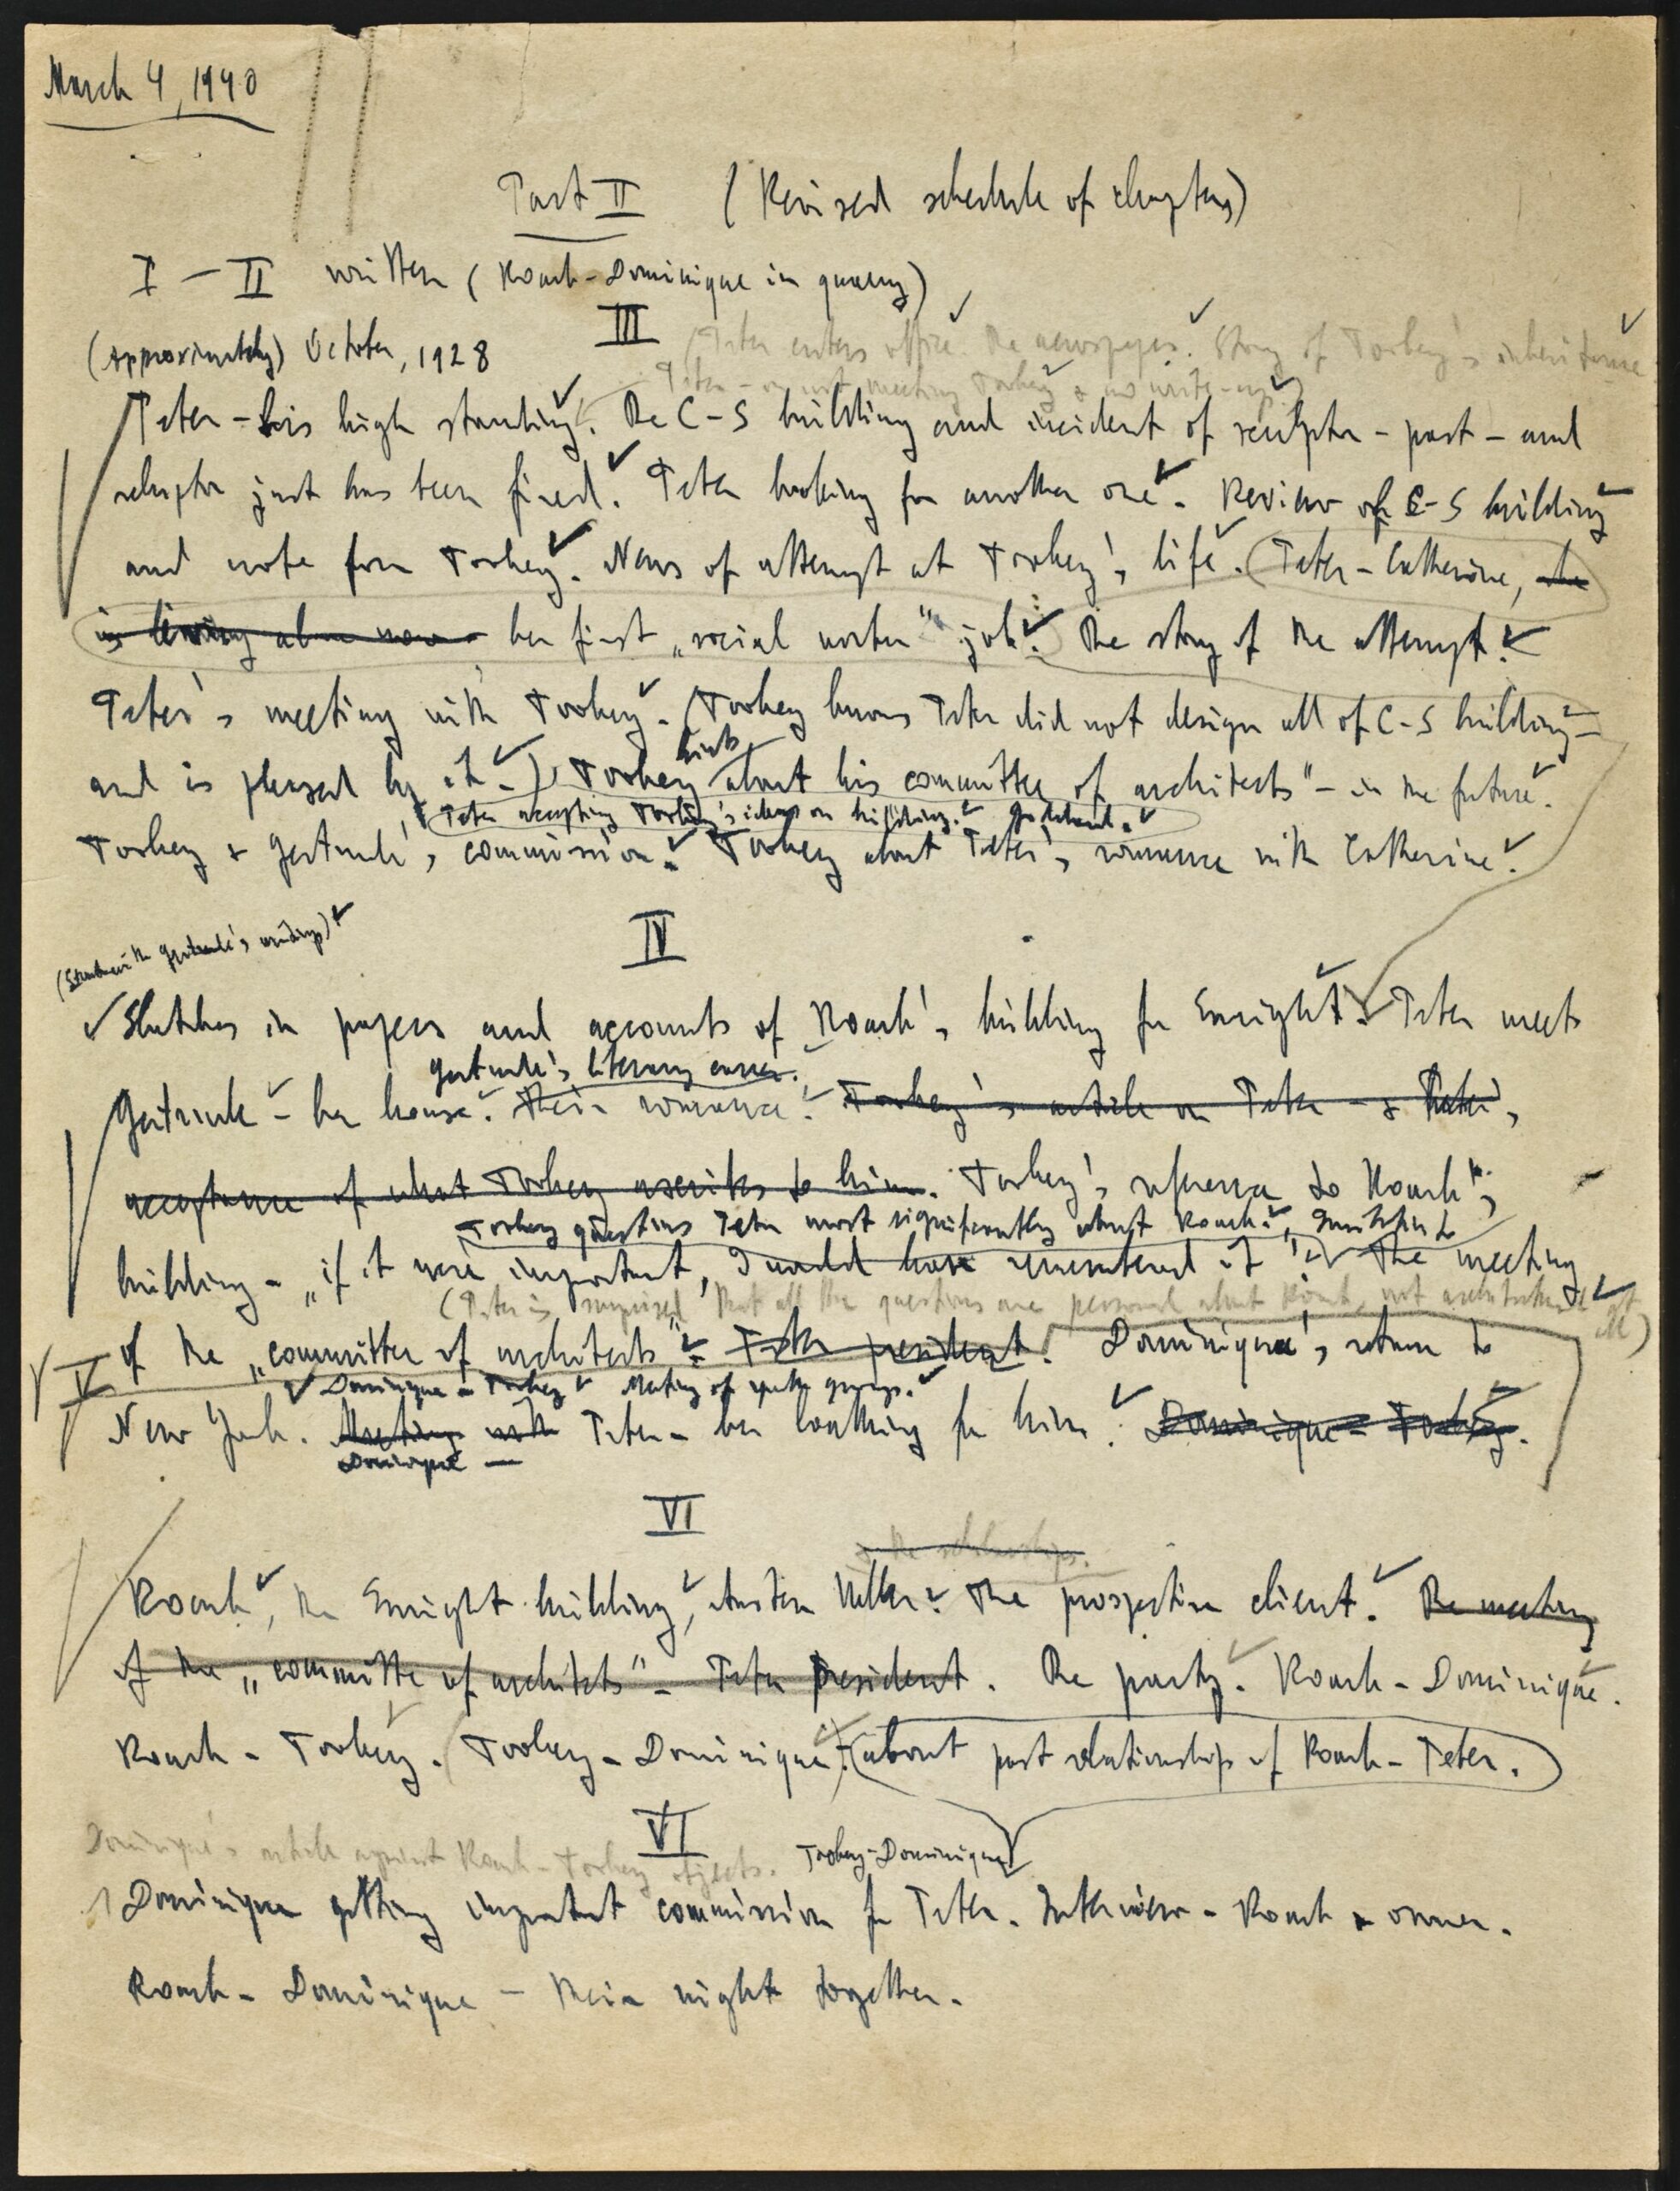 March 4, 1940
Part II (Revised schedule of chapters)
I – II written (Roark–Dominique in quarry)
III
(Approximately) October, 1928
(Peter enters office the newspapers. Story of Toohey's inheritance.
Peter – on not meeting Toohey & no write-up)
Peter – his high standing. The C–S building and incident of sculptor – past – and
sculptor just has been fired. Peter looking for another one. Review of C–S building
and note from Toohey. News of attempt at Toohey's life. (Peter–Catherine, she
is living alone now – her first „social worker" job. The story of the attempt.
Peter's meeting with Toohey. (Toohey knows Peter did not design all of C–S building –
and is pleased by it.) Toohey hints about his committee of architects" – in the future.
Peter accepting Toohey's ideas on building.
Toohey & Gertrude's commission. Toohey about Peter's romance with Catherine.
IV
(Start with Gertrude's writings)
Sketches in papers and accounts of Roark's building for Enright. Peter meets
Gertrude's literary career.
Gertrude – her house. Their romance. Toohey's article on Peter – & Peter's
acceptance of what Toohey ascribes to him. Toohey's reference to Roark's
Toohey questions Peter most significantly about Roark.
building – „if it were important, I would have remembered it". The meeting
(Peter is surprised that all the questions are personal about Roark, not architectural at all)
of the „committee of architects" – Peter president. Dominique's return to
V
Dominique – Toohey Meeting of youth groups.
New York. Meeting with Peter – her loathing for him. Dominique – Toohey.
Dominique –
VI
& the scholarships.
Roark, the Enright building, Austen Heller. The prospective client. The meeting
of the „committe of architects" – Peter president. The party. Roark – Dominique.
Roark – Toohey. (Toohey – Dominique.) (about past relationship of Roark – Peter.)
VI
Dominique's article against Roark – Toohey objects. Toohey–Dominique
Dominique getting important commission for Peter. Interview – Roark & owner.
Roark – Dominique – their night together.